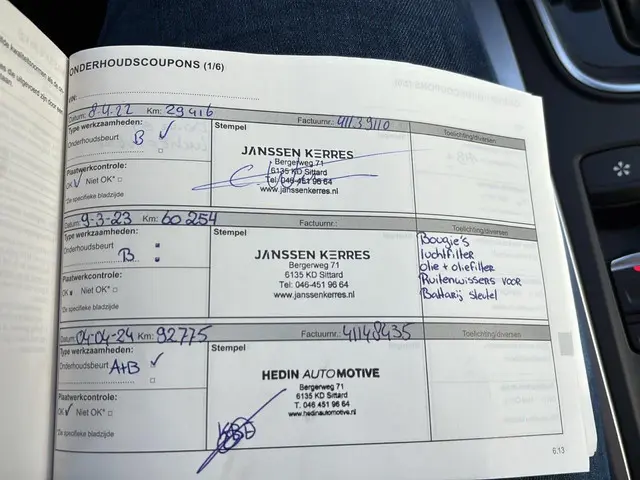 ONDERHOUDSCOUPONS (1/6)
VIN:
Datum: 8-4-22 Km: 29416 Factuurnr.: 41139110
Type werkzaamheden:
Onderhoudsbeurt B ✓
Plaatwerkcontrole:
OK ✓ Niet OK* □
*De specifieke bladzijde
Stempel
JANSSEN KERRES
Bergerweg 71
6135 KD Sittard
Tel: 046-451 96 64
www.janssenkerres.nl
Toelichting/diversen
Datum: 9-3-23 Km: 60 254 Factuurnr.:
Type werkzaamheden:
Onderhoudsbeurt B
Plaatwerkcontrole:
OK Niet OK* □
*De specifieke bladzijde
Stempel
JANSSEN KERRES
Bergerweg 71
6135 KD Sittard
Tel: 046-451 96 64
www.janssenkerres.nl
Toelichting/diversen
Bougie's
luchtfilter
olie + oliefilter
Ruitenwissers voor
Batterij sleutel
Datum: 04-04-24 Km: 92775 Factuurnr.: 41148435
Type werkzaamheden:
Onderhoudsbeurt A+B ✓
Plaatwerkcontrole:
OK ✓ Niet OK* □
*De specifieke bladzijde
Stempel
HEDIN AUTOMOTIVE
Bergerweg 71
6135 KD Sittard
T. 046 451 96 64
www.hedinautomotive.nl
Toelichting/diversen
6.13